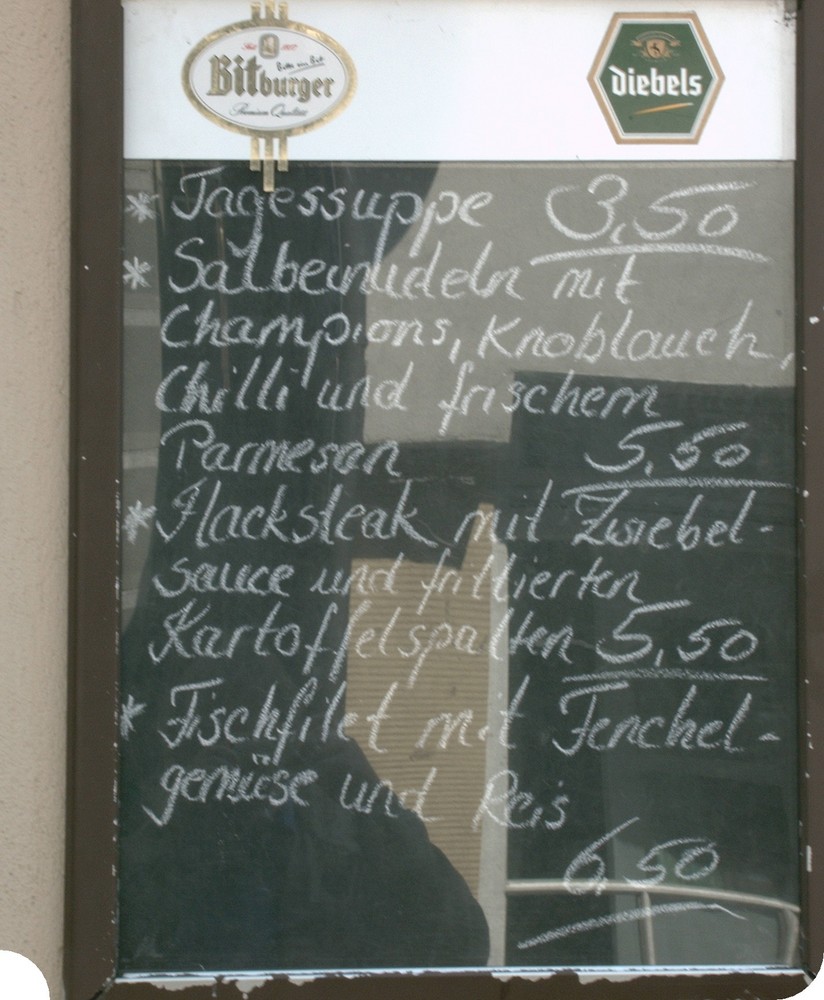 Seit 1817
Bitte ein Bit
Bitburger
Premium Qualität
Diebels
* Tagessuppe 3,50
* Salbeinudeln mit
Champions, Knoblauch,
Chilli und frischem
Parmesan 5,50
* Hacksteak mit Zwiebel-
sauce und frittierten
Kartoffelspalten 5,50
* Fischfilet mit Fenchel-
gemüse und Reis
6,50